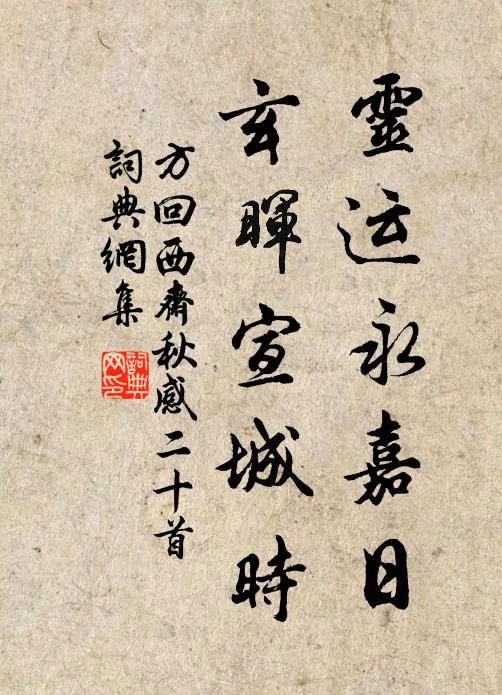 靈运永嘉日
玄暉宣城時
方回西齋秋感二十首
詞典網集
詞典網印